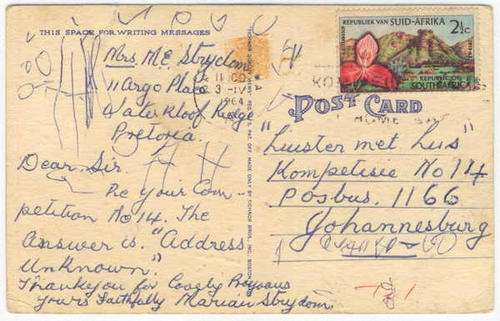 THIS SPACE FOR WRITING MESSAGES
Mrs. M.E. Strydom
11 Argo Place
Waterkloof Ridge
Pretoria.
Dear Sir
Re Your Com-
petition No 14. The
Answer is. "Address
Unknown."
Thankyou for Lovely Programs
Yours Faithfully Marian Strydom.
REPUBLIEK VAN SUID-AFRIKA
2½c
REPUBLIC OF
SOUTH AFRICA
3-IV
1964
POST CARD
"Luister met Lus"
Kompetisie No 14
Posbus. 1166
Johannesburg